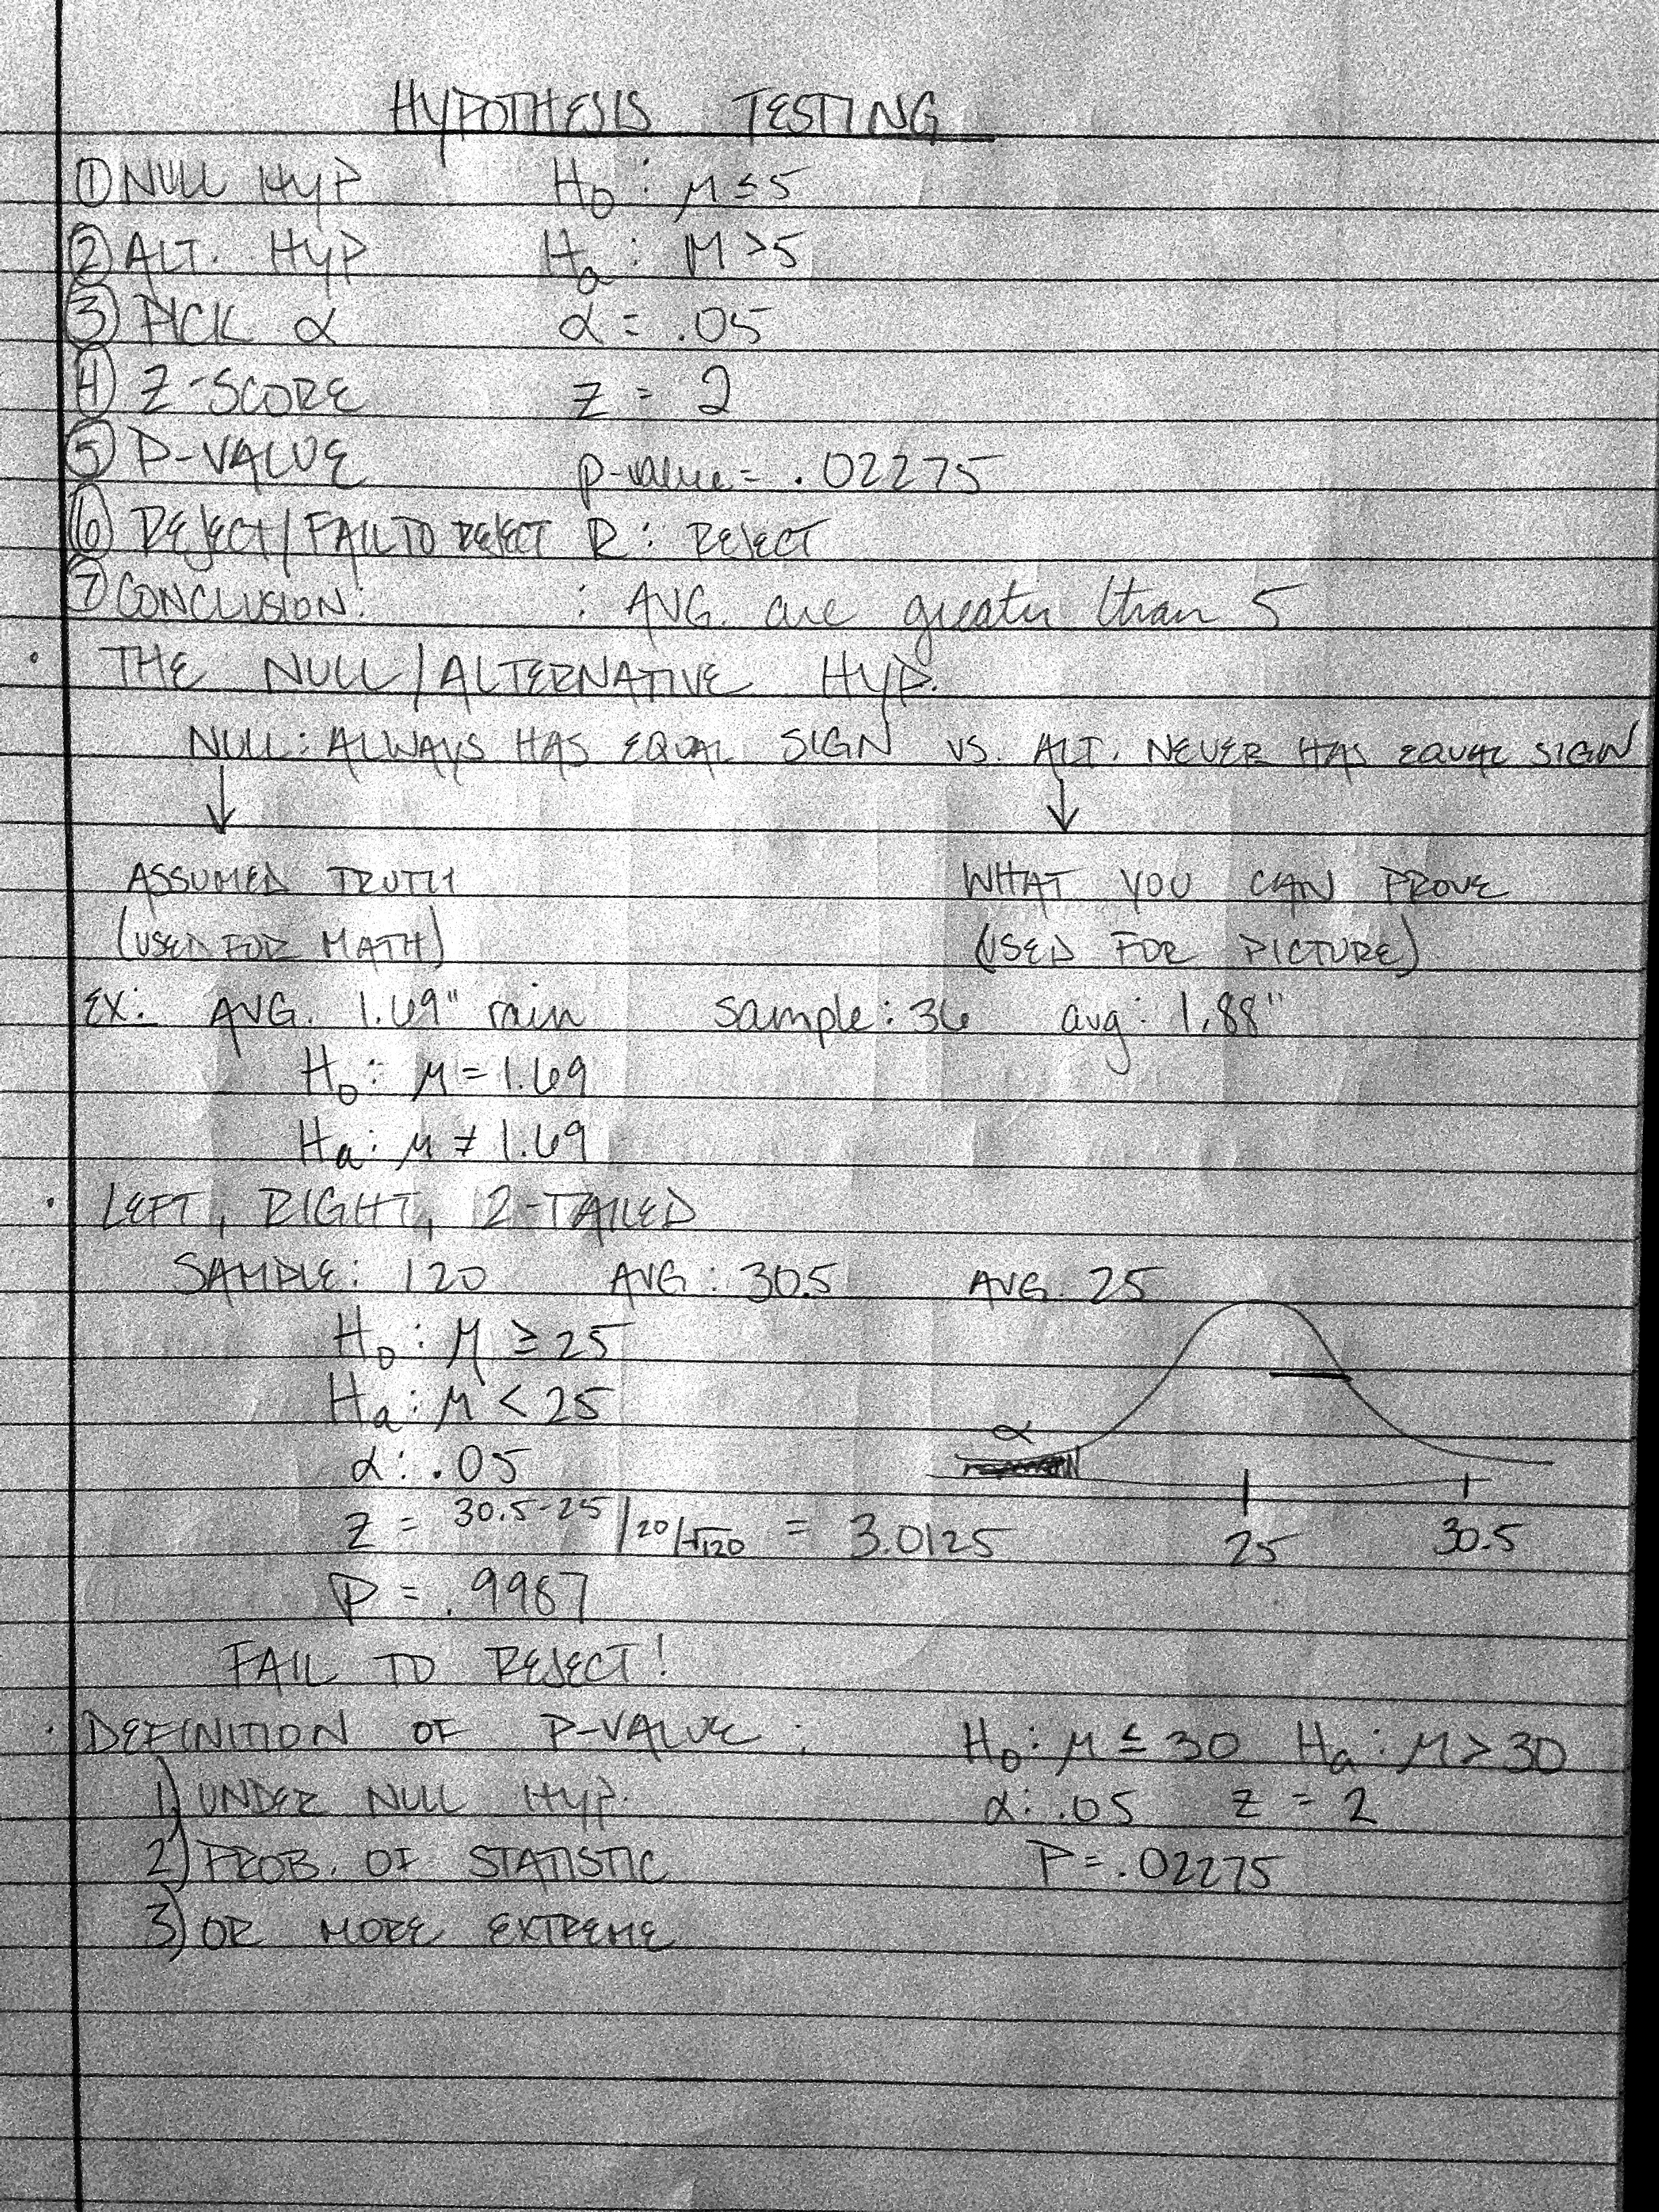 HYPOTHESIS TESTING
① NULL HYP H₀: μ ≤ 5
② ALT. HYP Hₐ: μ > 5
③ PICK α α = .05
④ Z-SCORE z = 2
⑤ P-VALUE p-value = .02275
⑥ REJECT/FAIL TO REJECT R: REJECT
⑦ CONCLUSION: : AVG. are greater than 5
• THE NULL/ALTERNATIVE HYP.
NULL: ALWAYS HAS EQUAL SIGN VS. ALT. NEVER HAS EQUAL SIGN
↓ ↓
ASSUMED TRUTH WHAT YOU CAN PROVE
(USED FOR MATH) (USED FOR PICTURE)
EX: AVG. 1.69" rain sample: 36 avg: 1.88"
H₀: μ = 1.69
Hₐ: μ ≠ 1.69
• LEFT, RIGHT, 2-TAILED
SAMPLE: 120 AVG: 30.5 AVG. 25
H₀: μ ≥ 25
Hₐ: μ < 25
α
α: .05
z = 30.5-25/20/√120 = 3.0125
25 30.5
P = .9987
FAIL TO REJECT!
• DEFINITION OF P-VALUE: H₀: μ ≤ 30 Hₐ: μ > 30
1) UNDER NULL HYP. α: .05 z = 2
2) PROB. OF STATISTIC P = .02275
3) OR MORE EXTREME